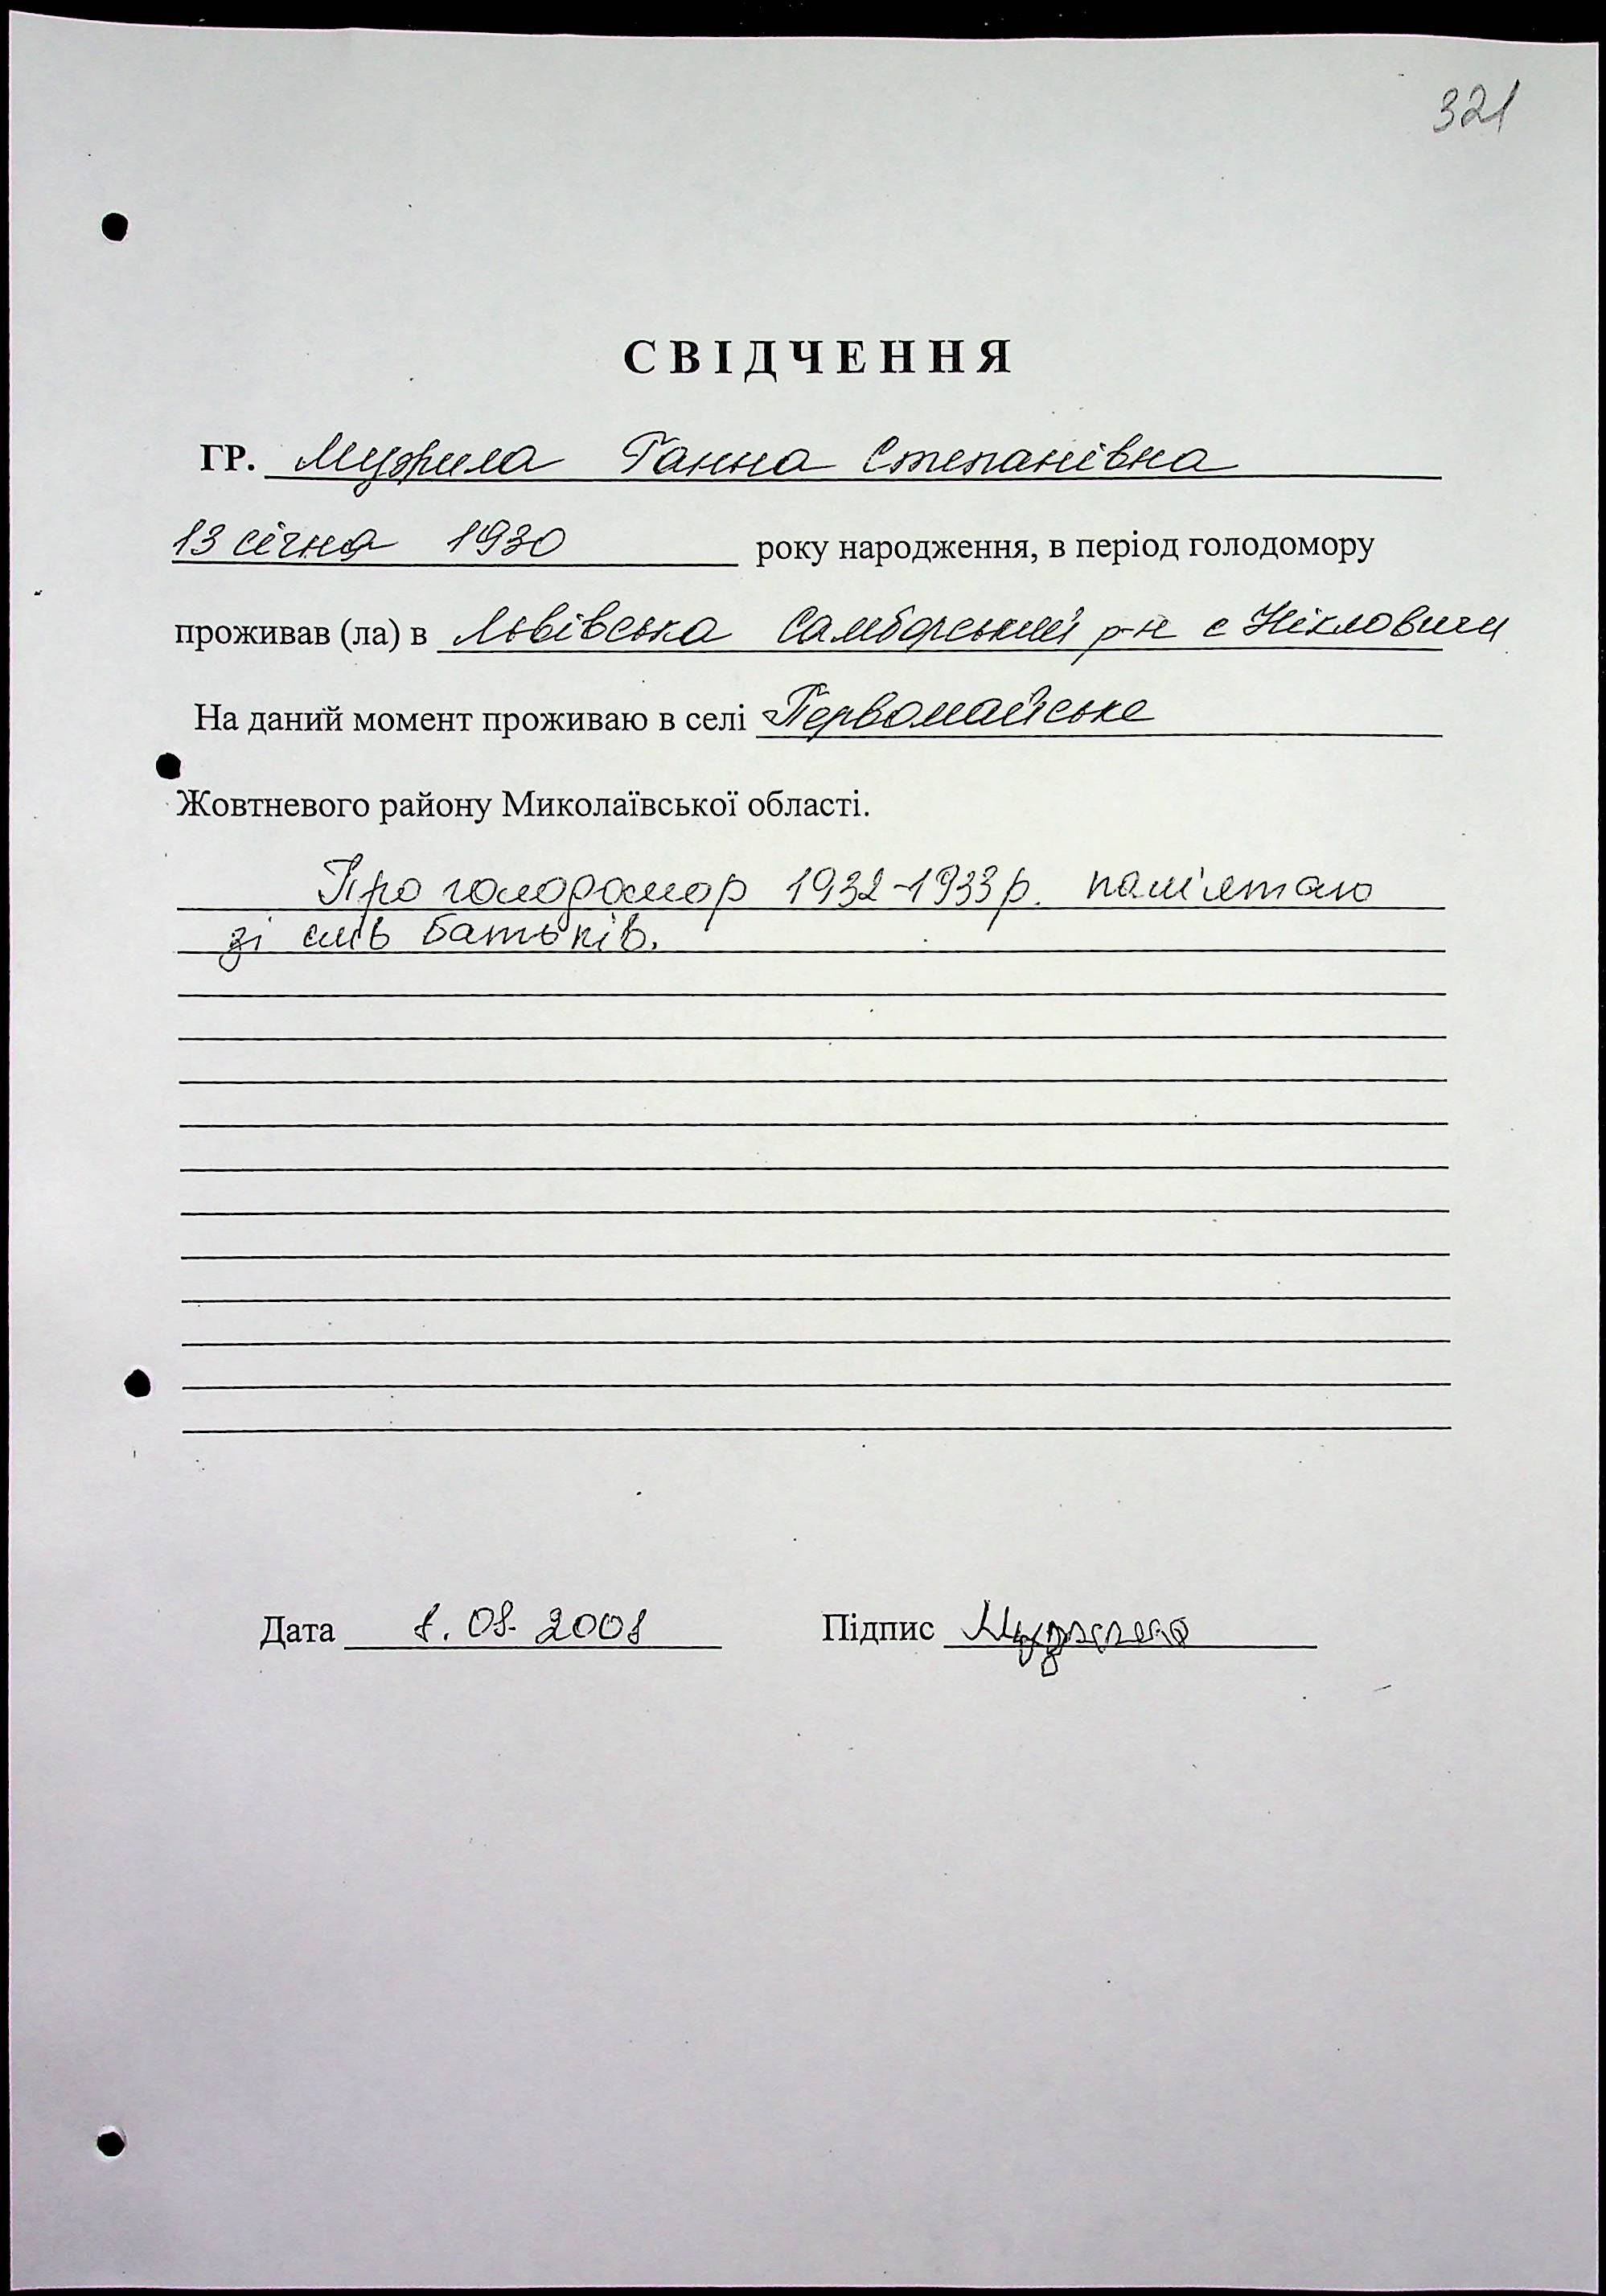 321
СВІДЧЕННЯ
ГР. Ганна Степанівна
13 січня 1930 року народження, в період голодомору
проживав (ла) в Львівська Самборський р-н с Нікловичи
На даний момент проживаю в селі Первомайське
Жовтневого району Миколаївської області.
Про голодомор 1932-1933р. пам'ятаю
зі слів батьків.
Дата 8.08.2008 Підпис